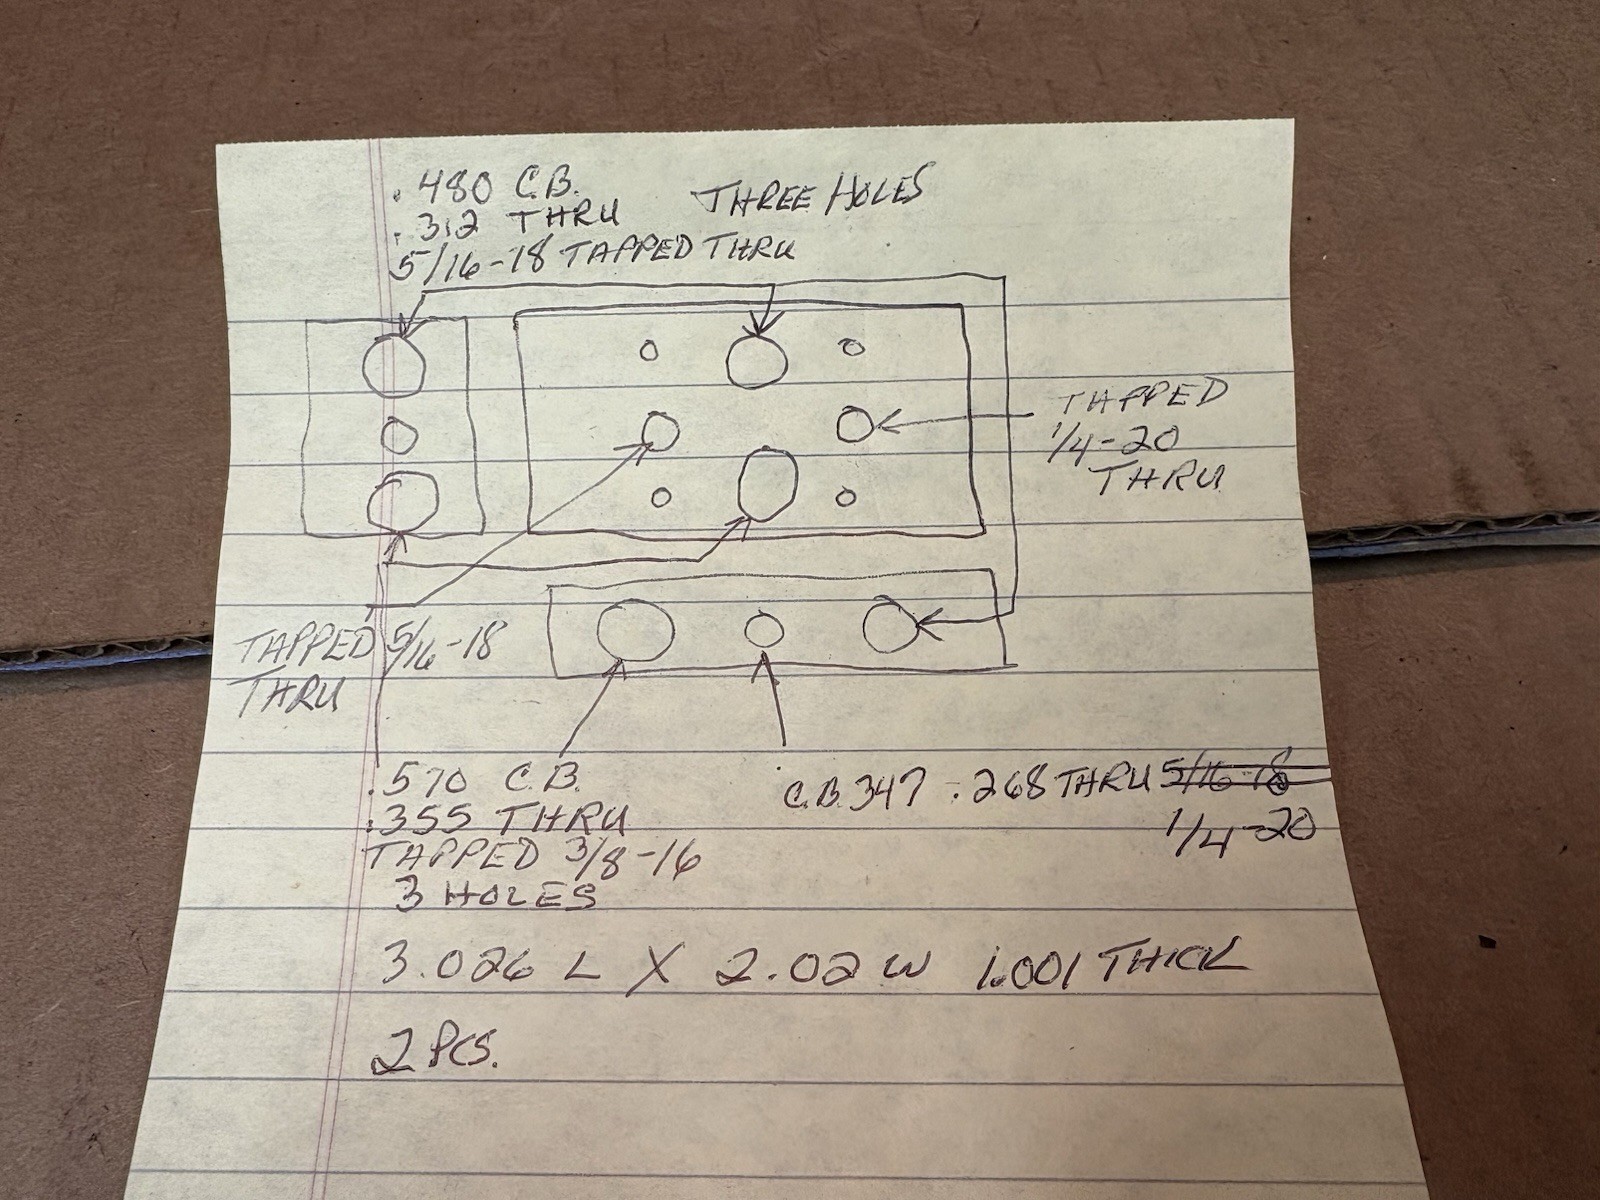 .480 C.B.
.312 THRU THREE HOLES
5/16-18 TAPPED THRU
TAPPED
1/4-20
THRU
TAPPED 5/16-18
THRU
.570 C.B.
.355 THRU
TAPPED 3/8-16
3 HOLES
C.B. 347 .268 THRU 5/16-18
1/4-20
3.026 L X 2.02 W 1.001 THICK
2 PCS.